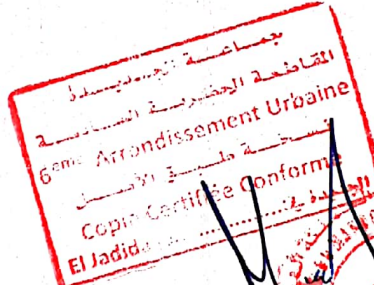 جماعة الجديدة
المقاطعة الحضرية السادسة
6ème Arrondissement Urbaine
نسخة طبق الأصل
Copie Certifiée Conforme
El Jadida ............... الجديدة في